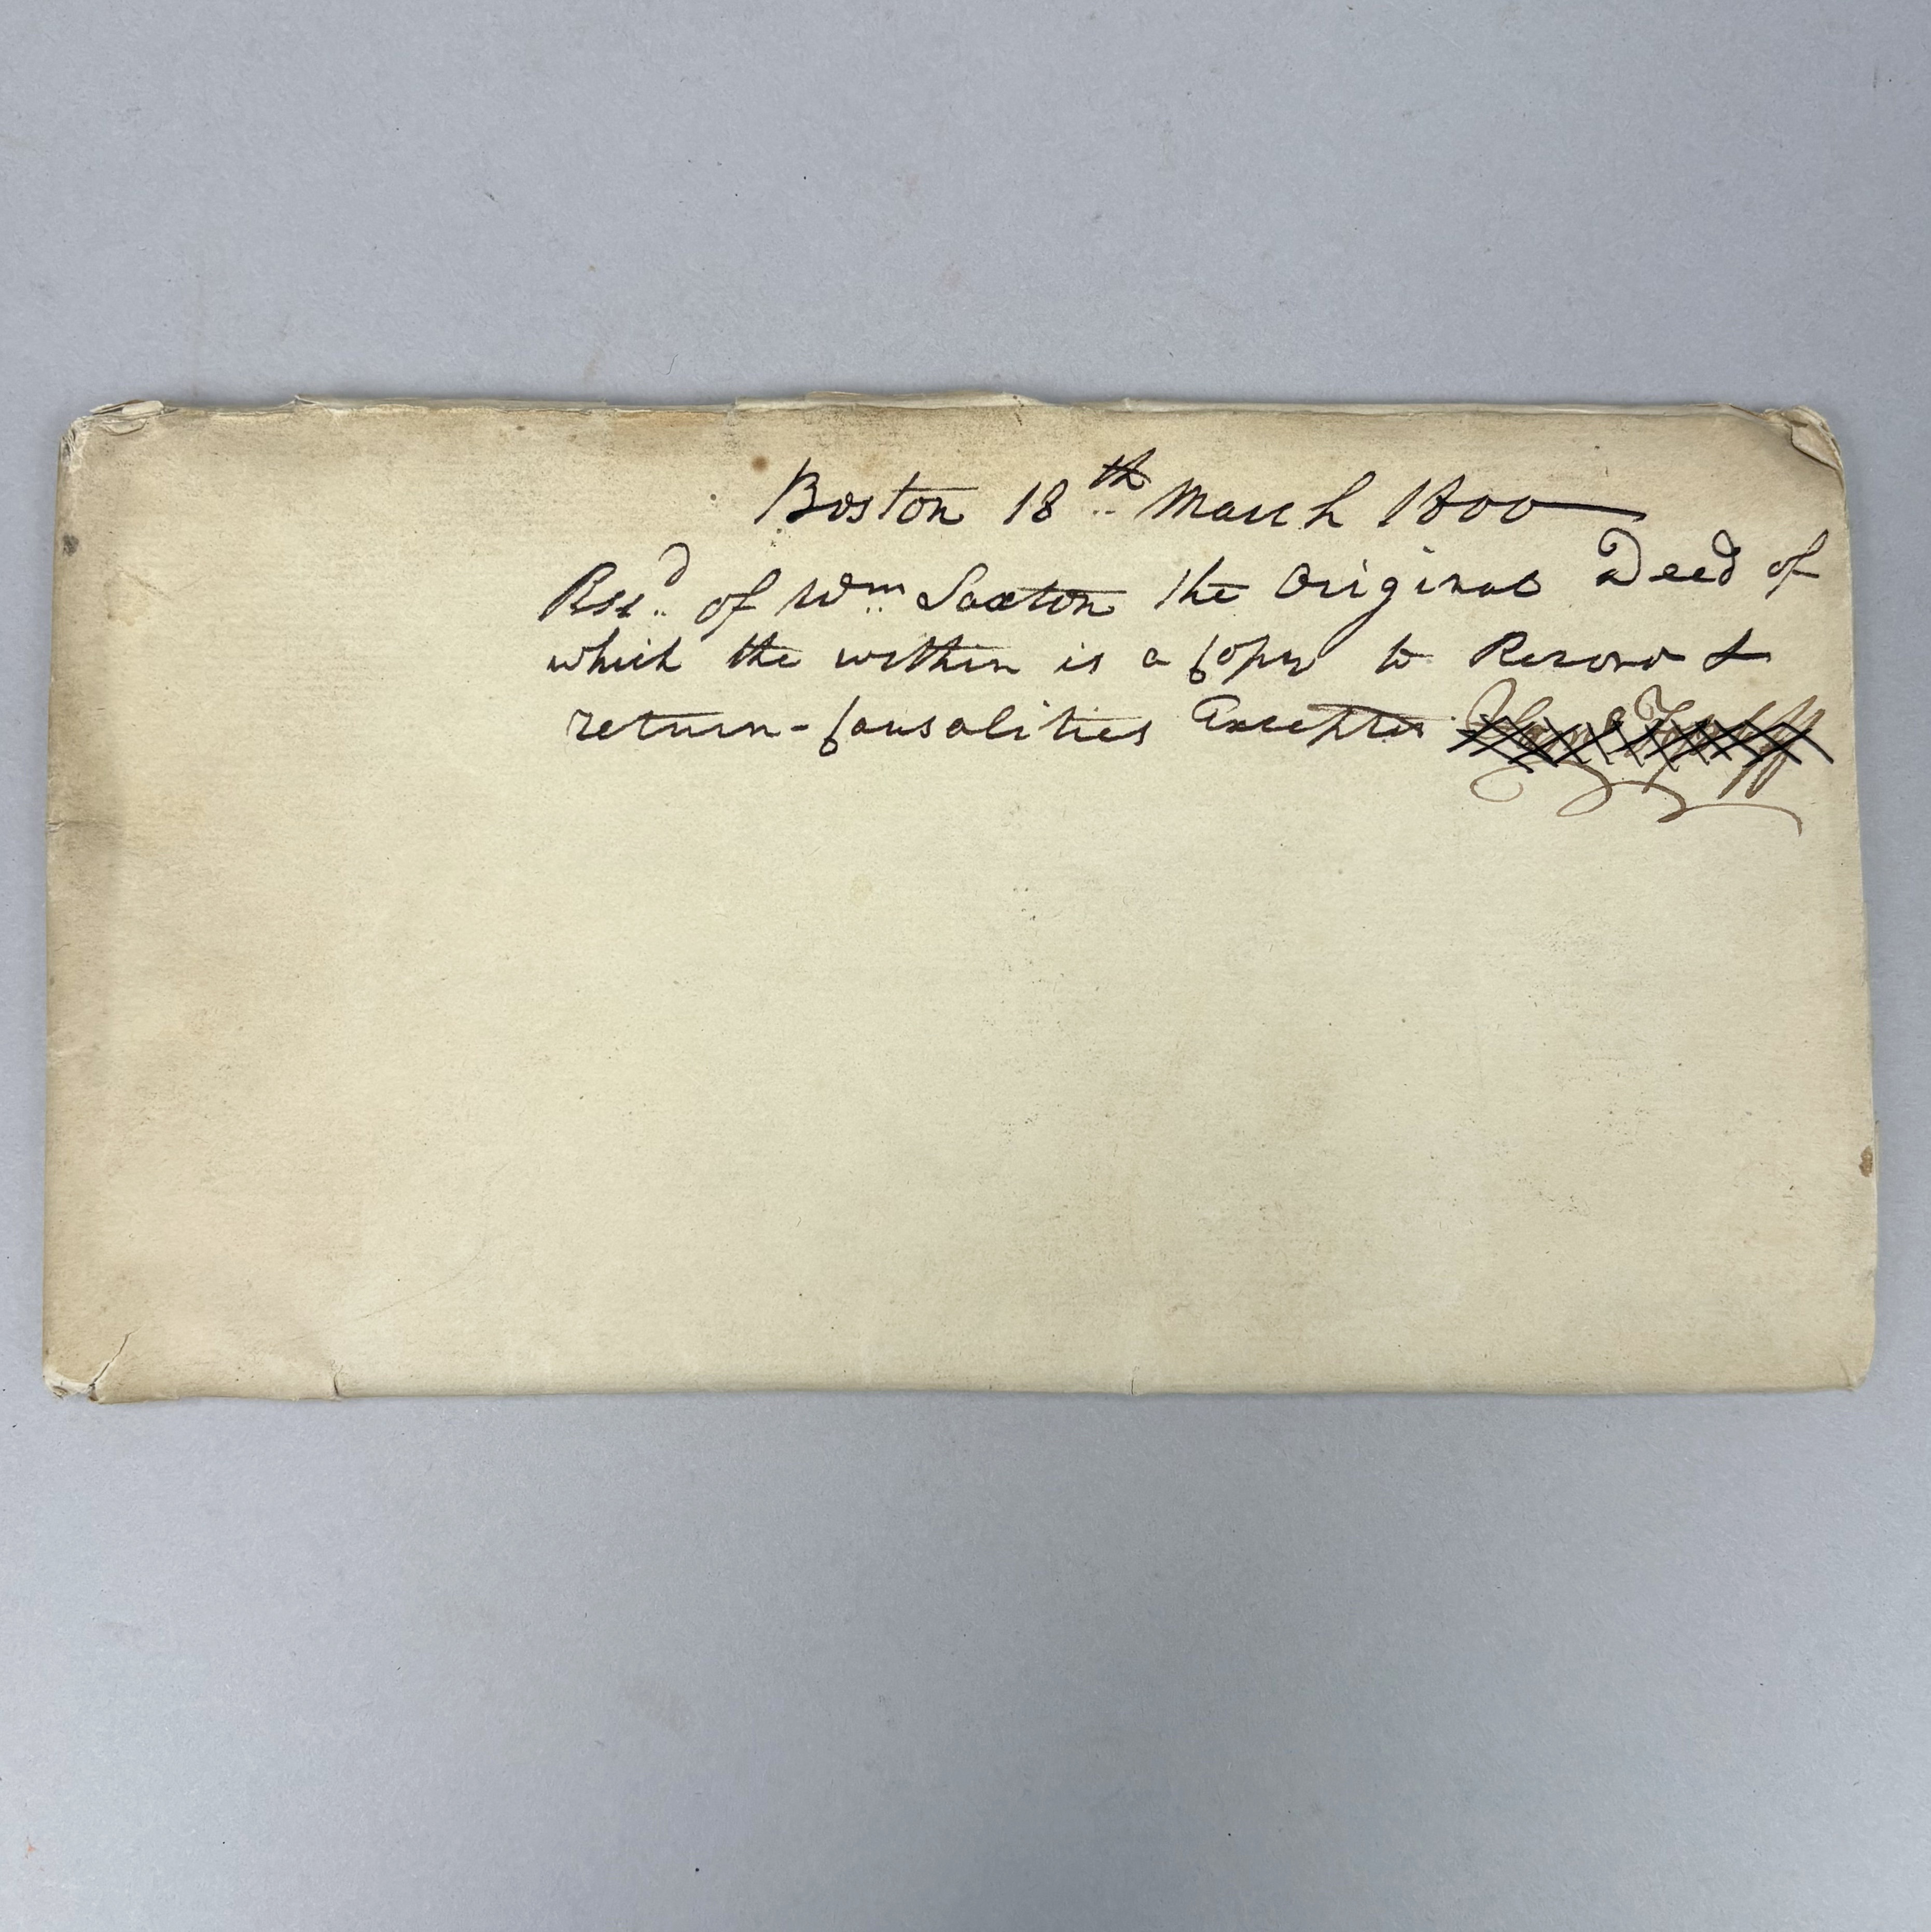 Boston 18th March 1800
Recd of Wm Saxton the Original Deed of
which the within is a Copy to Record &
return - Causalities Excepted